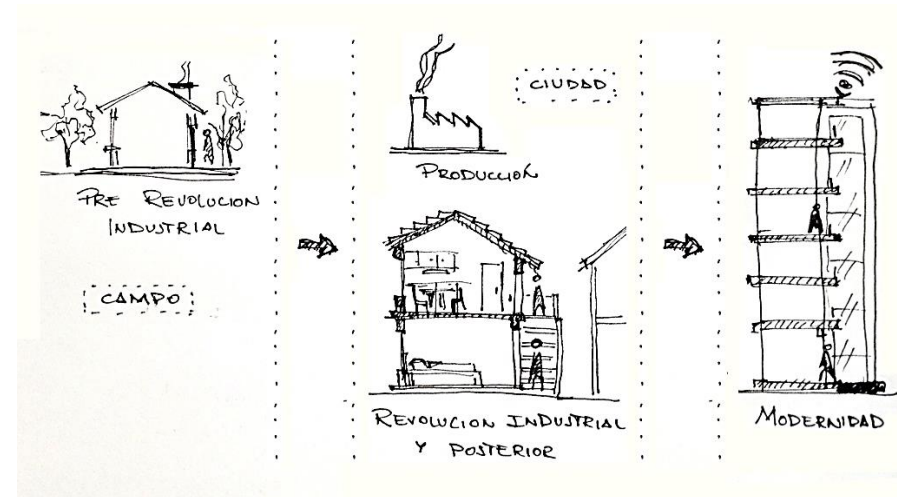 PRE REVOLUCION
INDUSTRIAL
CAMPO
CIUDAD
PRODUCCIÓN
REVOLUCION INDUSTRIAL
Y POSTERIOR
MODERNIDAD